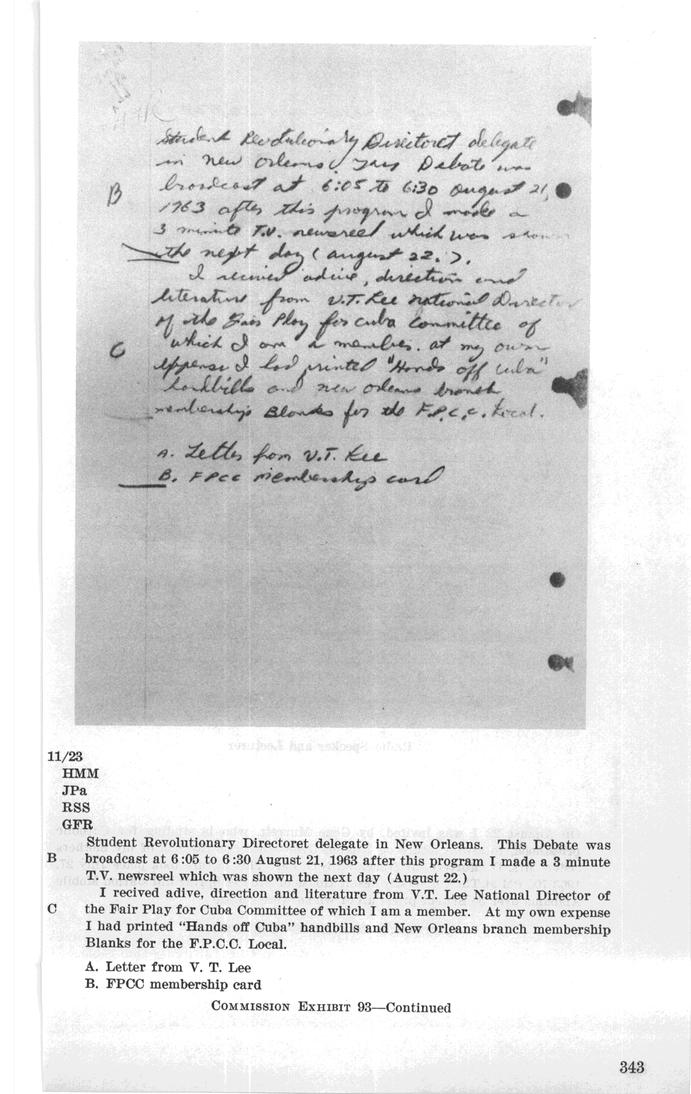 Student Revolutionary Directoret delegate
in New Orleans. This Debate was
B broadcast at 6:05 to 6:30 August 21,
1963 after this program I made a
3 minute T.V. newsreel which was shown
the next day (august 22.).
I recived adive, direction and
literature from V.T. Lee National Director
of the Fair Play for Cuba Committee of
C which I am a member. at my own
expense I had printed "Hands off Cuba"
handbills and New Orleans branch
membership Blanks for the F.P.C.C. Local.
A. Letter from V.T. Lee
B. FPCC membership card
11/23
HMM
JPa
RSS
GFR
Student Revolutionary Directoret delegate in New Orleans. This Debate was
B broadcast at 6:05 to 6:30 August 21, 1963 after this program I made a 3 minute
T.V. newsreel which was shown the next day (August 22.)
I recived adive, direction and literature from V.T. Lee National Director of
C the Fair Play for Cuba Committee of which I am a member. At my own expense
I had printed “Hands off Cuba” handbills and New Orleans branch membership
Blanks for the F.P.C.C. Local.
A. Letter from V. T. Lee
B. FPCC membership card
COMMISSION EXHIBIT 93—Continued
343